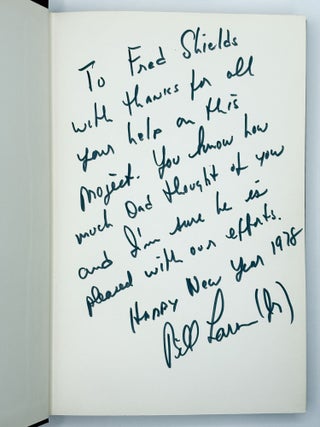 To Fred Shields
with thanks for all
your help on this
project. You know how
much Dad thought of you
and I'm sure he is
pleased with our efforts.
Happy New Year 1978
Bill Larsen (Jr)